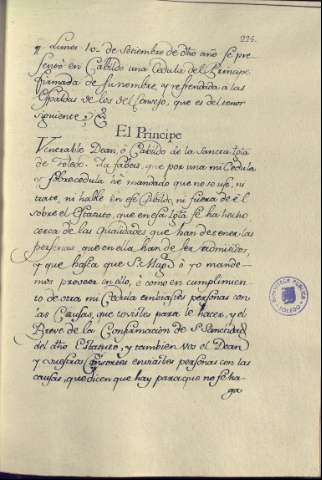 225.
Lunes 10 de Setiembre de dho año se pre-
sentò en Cabildo una Cedula del Principe
firmada de su nombre, y refrendada a las
Espaldas de los del Consejo, que es del tenor
siguiente
El Principe
Venerable Dean, ò Cabildo de la Sancta Igla
de Toledo. Ya sabeis, que por una mi Cedula
y sobrecedula hè mandado que no se use, ni
trate, ni hable en ese Cabildo, ni fuera de èl
sobre el Estatuto, que en esa Igla se ha hecho
cerca de las qualidades que han de tener las
personas que en ella han de ser admitidas,
y que hasta que Su Magd ò yo mande-
mos proveer en ello, è como en cumplimien-
to de otra mi Cedula embiasteis personas con
las Causas, que tovistes para le hacer, y el
Breve de la Confirmación de Su Sanctidad
del dho Estatuto, y tambien Vos el Dean
y vuestros Consortes enviastes personas con las
causas, que dicen que hay para que no se ha-
ga
BIBLIOTECA PUBLICA
TOLEDO